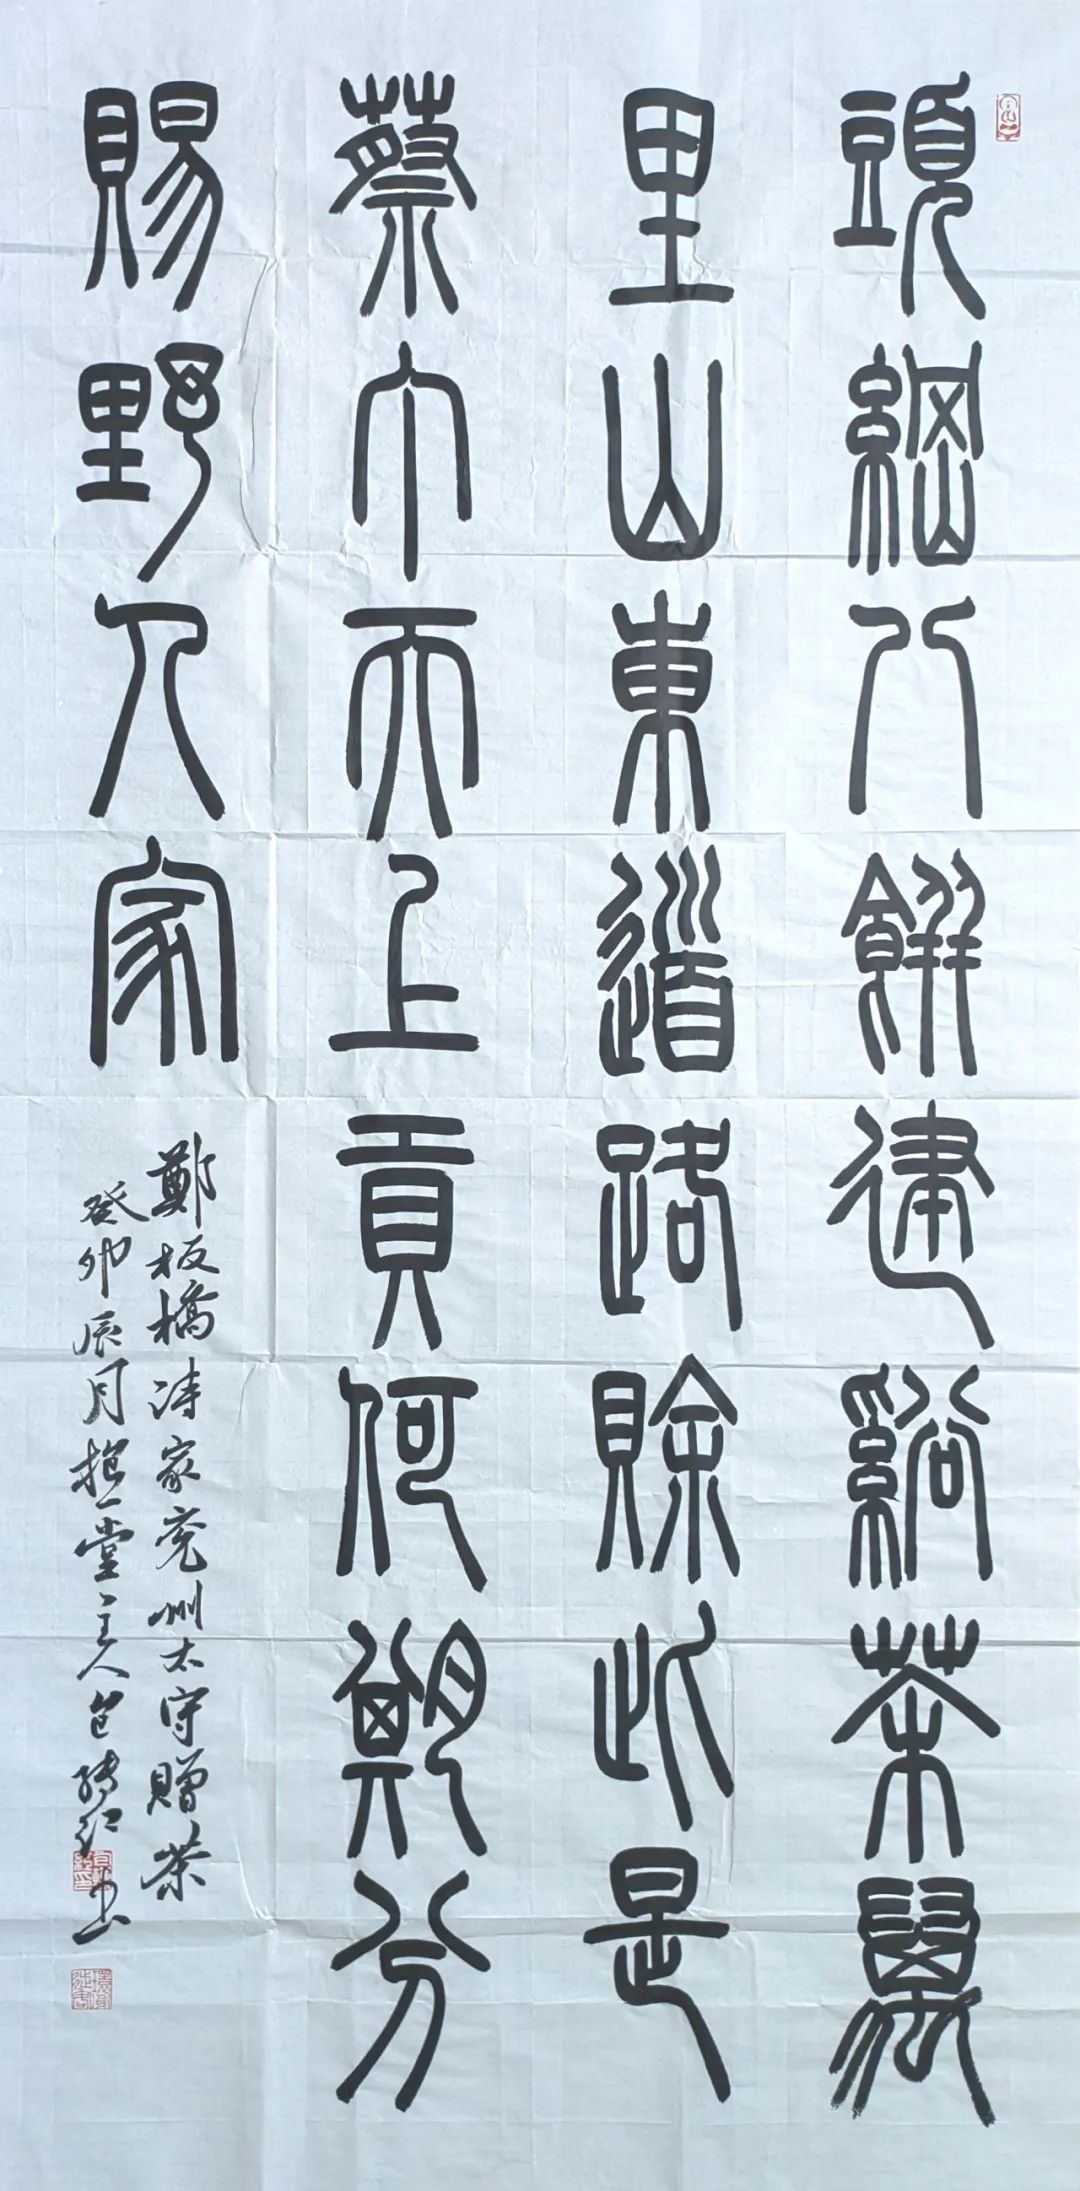 頭綱八餅建谿茶萬
里山東道路賒此是
蔡丁天上貢何期分
賜野人家
鄭板橋詩家兖州太守贈茶
癸卯辰月抱一堂主人包